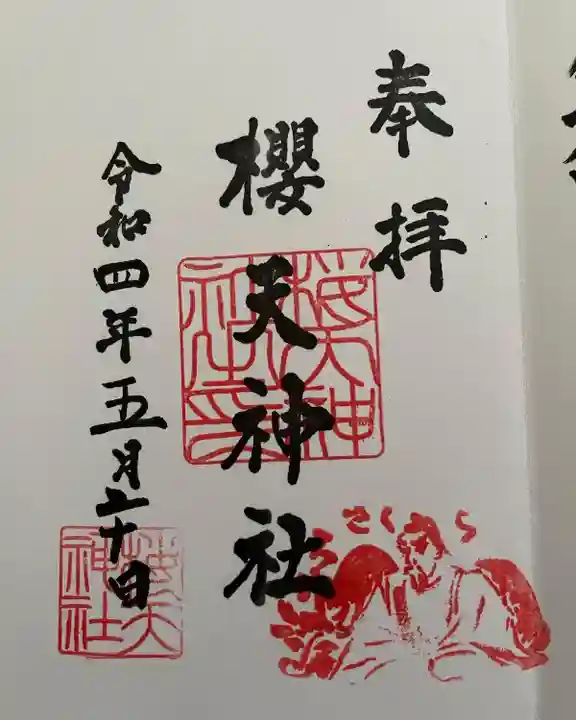 奉拝
櫻天神社
令和四年五月二十日
桜天神
桜天
神社
さくら